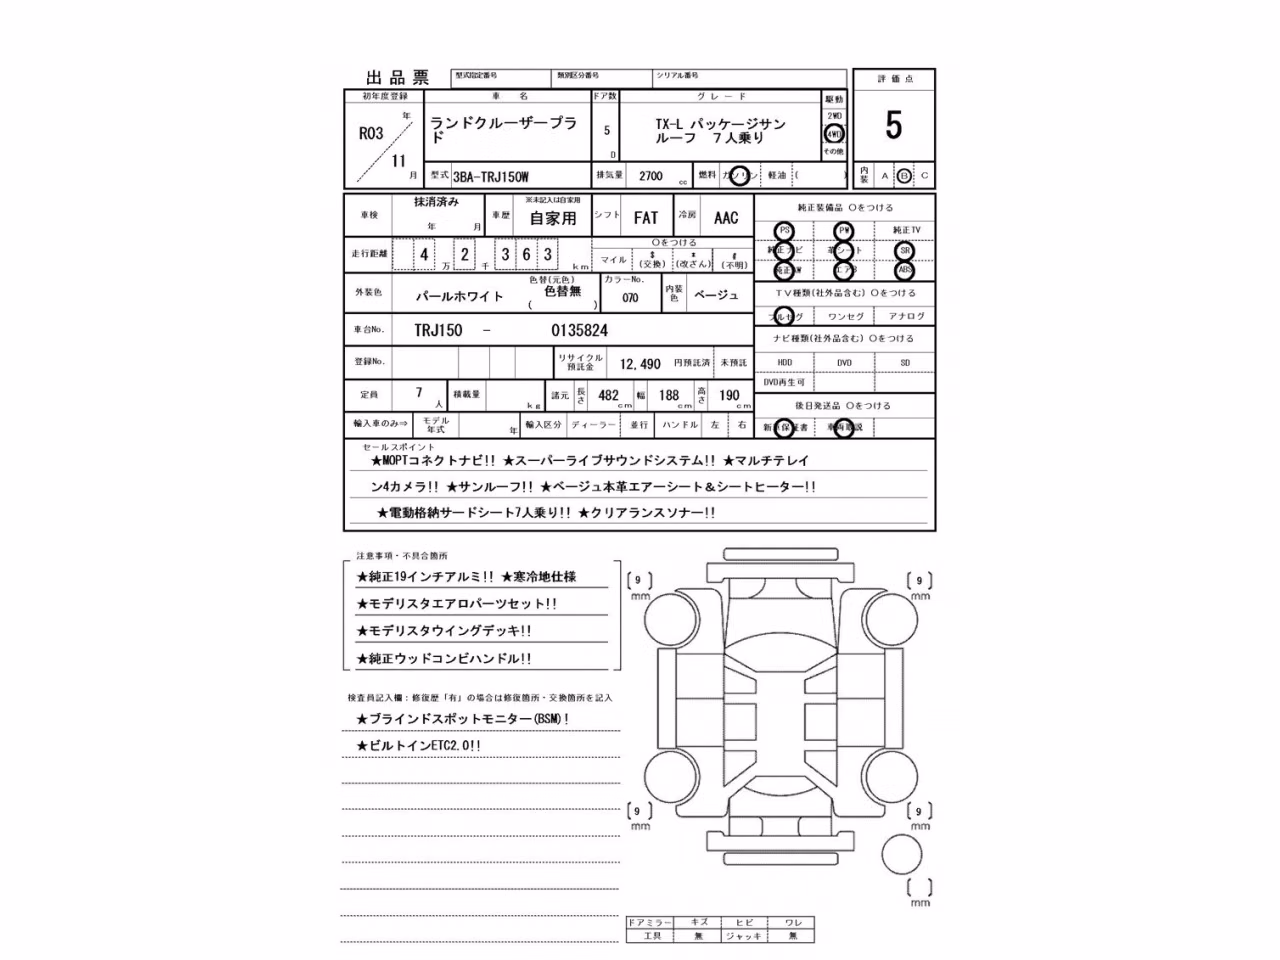 出品票 型式指定番号 類別区分番号 シリアル番号
評価点
初年度登録 車名 ドア数 グレード 駆動
R03 年 11 月
ランドクルーザープラ
ド
5 D
TX-L パッケージサン
ルーフ 7人乗り
2WD
4WD
その他
5
型式 3BA-TRJ150W 排気量 2700 cc 燃料 ガソリン 軽油 ( )
内装 A B C
車検 抹消済み 年 月 車歴 ※未記入は自家用 自家用 シフト FAT 冷房 AAC
純正装備品 〇をつける
PS PW 純正TV
純正ナビ 革シート SR
純正AW エアB ABS
走行距離 4 万 2 千 3 6 3 km
〇をつける
マイル $ (交換) * (改ざん) # (不明)
外装色 パールホワイト 色替(元色) 色替無 ( ) カラーNo. 070 内装色 ベージュ
TV種類(社外品含む) 〇をつける
フルセグ ワンセグ アナログ
車台No. TRJ150 - 0135824
ナビ種類(社外品含む) 〇をつける
HDD DVD SD
DVD再生可
登録No. リサイクル預託金 12,490 円預託済 未預託
定員 7 人 積載量 kg 諸元 長さ 482 cm 幅 188 cm 高さ 190 cm
後日発送品 〇をつける
新車保証書 車両取説
輸入車のみ⇒ モデル年式 年 輸入区分 ディーラー 並行 ハンドル 左 右
セールスポイント
★MOPTコネクトナビ!! ★スーパーライブサウンドシステム!! ★マルチテレイ
ン4カメラ!! ★サンルーフ!! ★ベージュ本革エアーシート&シートヒーター!!
★電動格納サードシート7人乗り!! ★クリアランスソナー!!
注意事項・不具合箇所
★純正19インチアルミ!! ★寒冷地仕様
★モデリスタエアロパーツセット!!
★モデリスタウイングデッキ!!
★純正ウッドコンビハンドル!!
検査員記入欄:修復歴「有」の場合は修復箇所・交換箇所を記入
★ブラインドスポットモニター(BSM)!
★ビルトインETC2.0!!
[9] mm
[9] mm
[9] mm
[9] mm
[ ] mm
ドアミラー キズ ヒビ ワレ
工具 無 ジャッキ 無